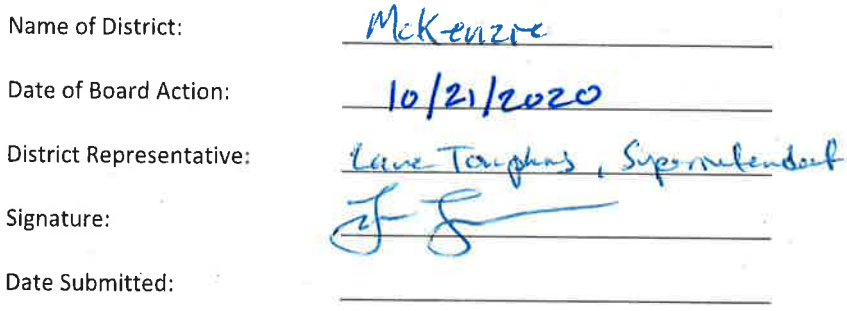 Name of District: McKenzie
Date of Board Action: 10/21/2020
District Representative: Lane Tompkins, Superintendent
Signature:
Date Submitted: